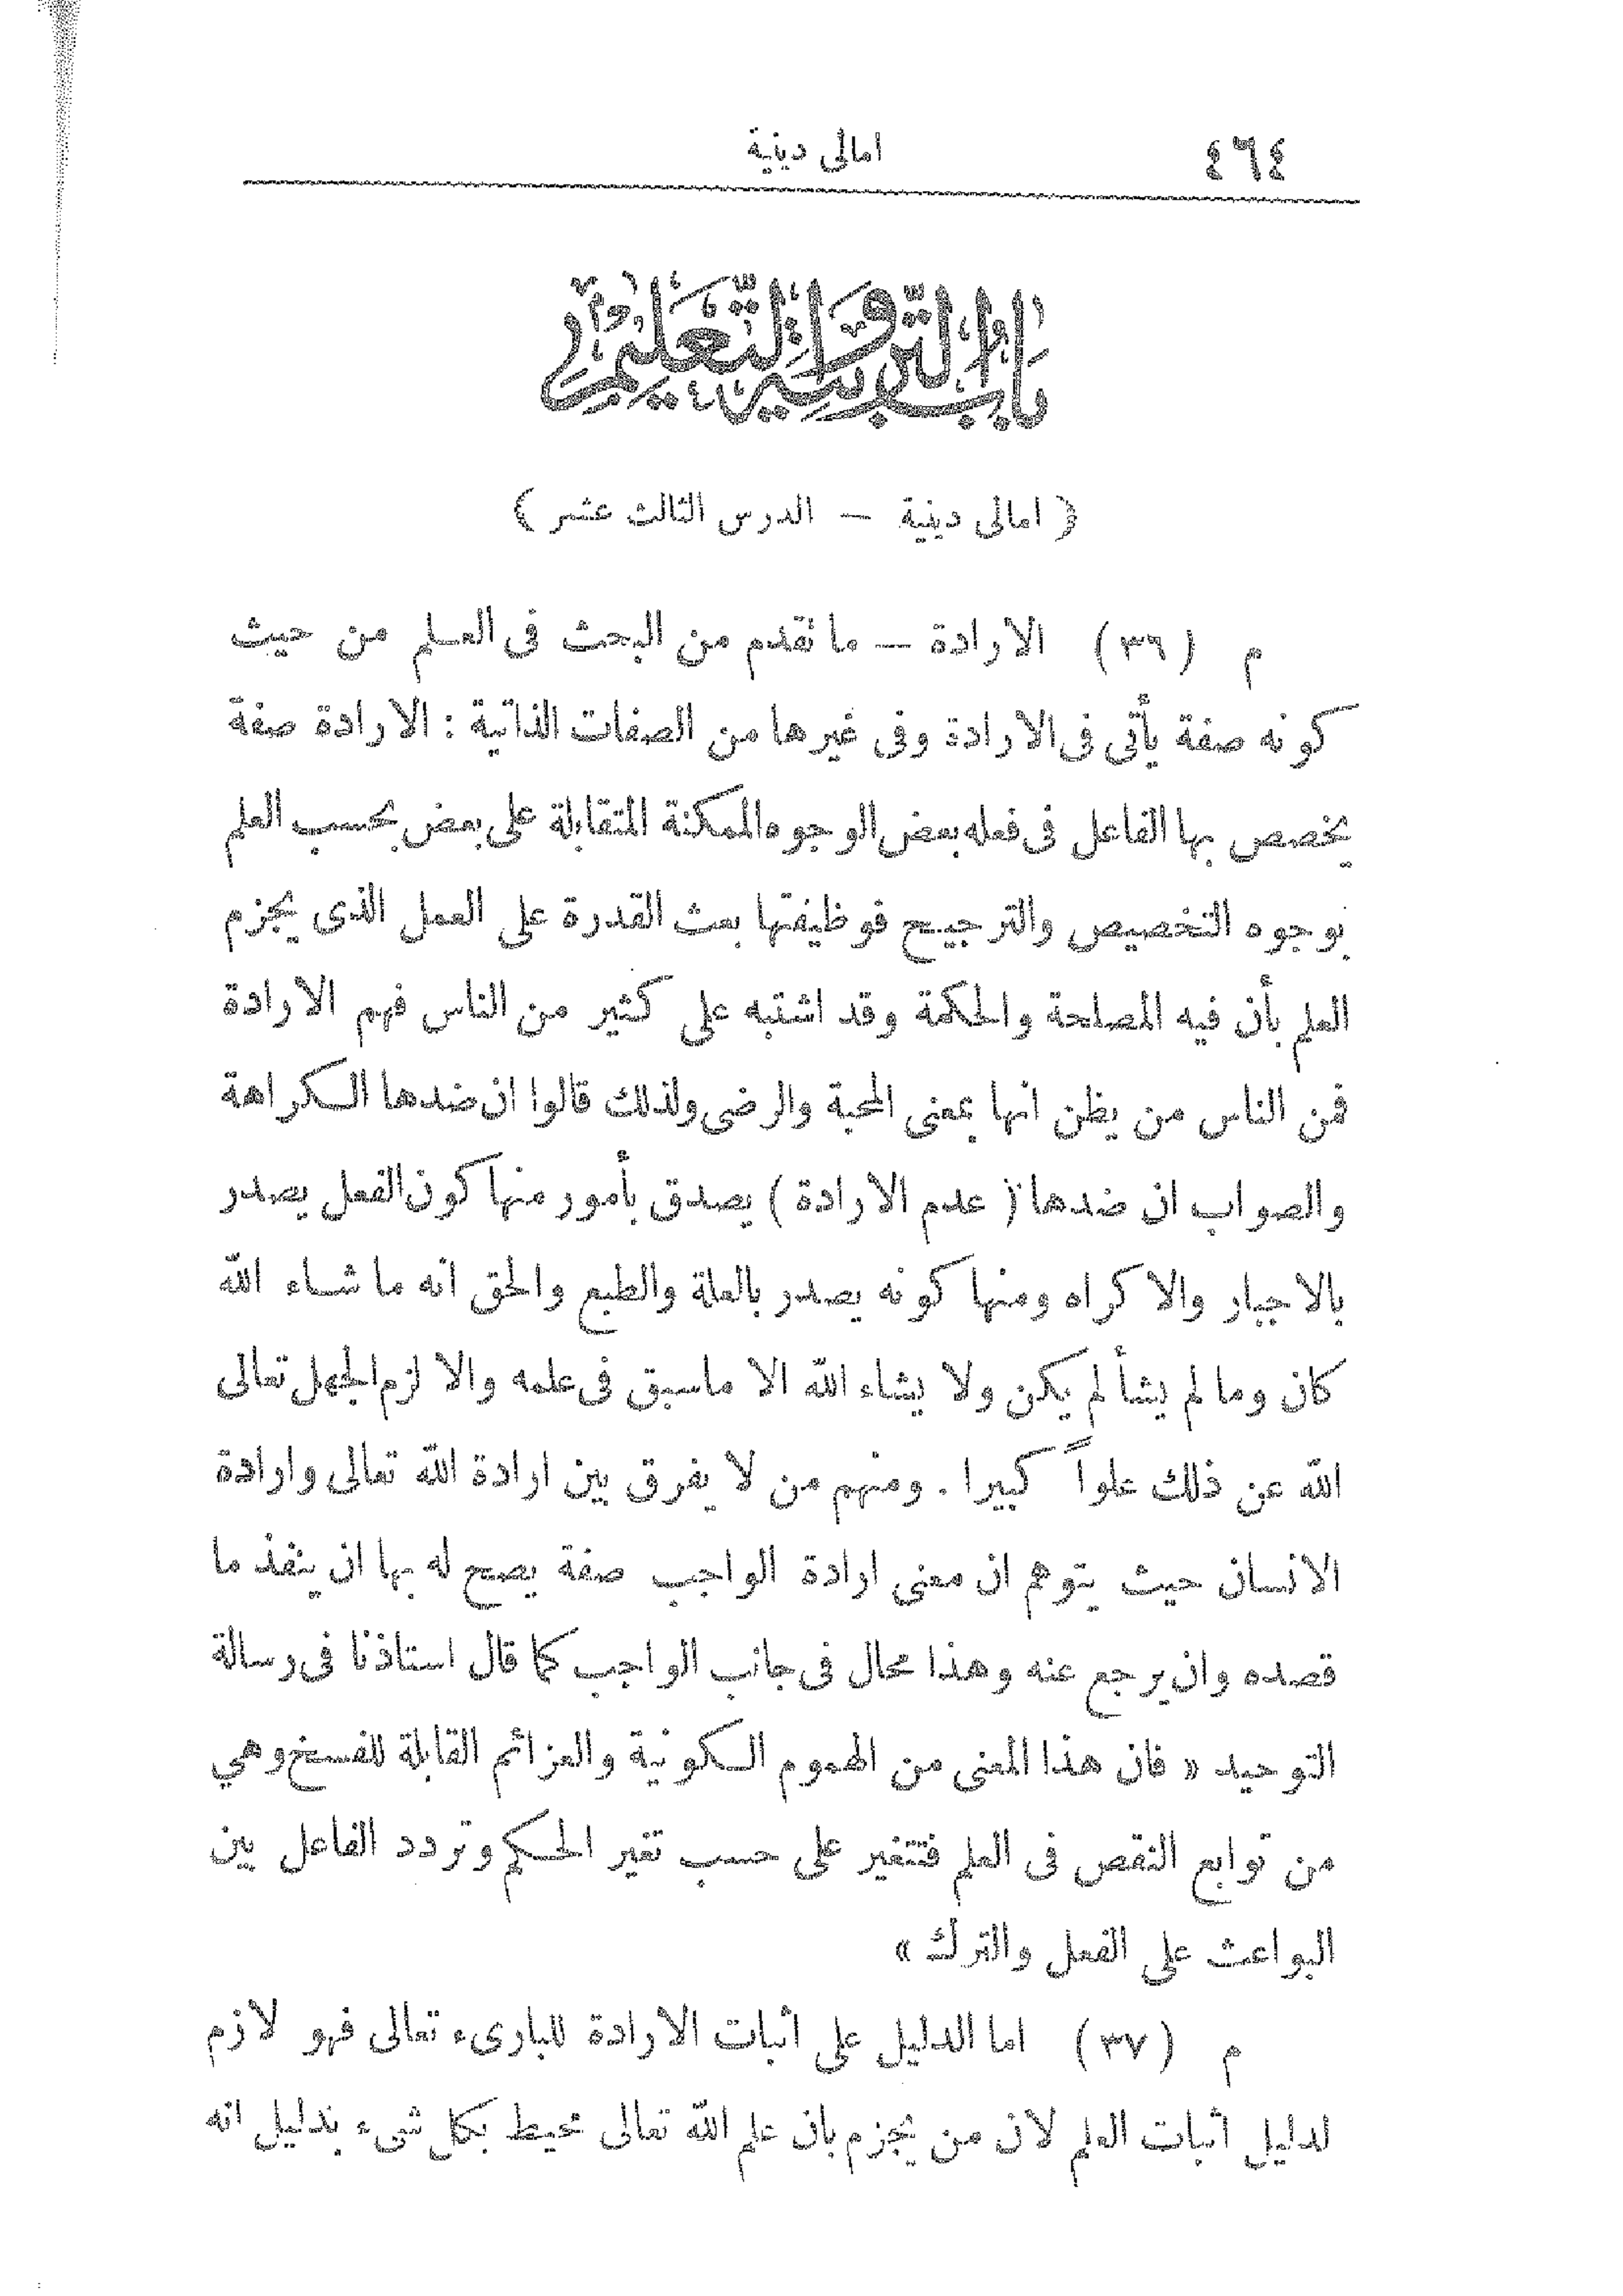 ٤٦٤
امالى دينية
باب التربية والتعليم
﴿ امالى دينية — الدرس الثالث عشر ﴾
م (٣٦) الارادة — ما تقدم من البحث فى العلم من حيث
كونه صفة يأتى فى الارادة وفى غيرها من الصفات الذاتية : الارادة صفة
يخصص بها الفاعل فى فعله بعض الوجوه الممكنة المتقابلة على بعض بحسب العلم
بوجوه التخصيص والترجيح فوظيفتها بعث القدرة على العمل الذى يجزم
العلم بأن فيه المصلحة والحكمة وقد اشتبه على كثير من الناس فهم الارادة
فمن الناس من يظن انها بمعنى المحبة والرضى ولذلك قالوا ان ضدها الكراهة
والصواب ان ضدها ( عدم الارادة ) يصدق بأمور منها كون الفعل يصدر
بالاجبار والاكراه ومنها كونه يصدر بالعلة والطبع والحق انه ما شاء الله
كان وما لم يشأ لم يكن ولا يشاء الله الا ماسبق فى علمه والا لزم الجهل تعالى
الله عن ذلك علواً كبيرا . ومنهم من لا يفرق بين ارادة الله تعالى وارادة
الانسان حيث يتوهم ان معنى ارادة الواجب صفة يصح له بها ان ينفذ ما
قصده وان يرجع عنه وهذا محال فى جانب الواجب كما قال استاذنا فى رسالة
التوحيد « فان هذا المعنى من الهموم الكونية والعزائم القابلة للفسخ وهي
من توابع النقص فى العلم فتتغير على حسب تغير الحكم وتردد الفاعل بين
البواعث على الفعل والترك »
م (٣٧) اما الدليل على اثبات الارادة للبارىء تعالى فهو لازم
لدليل اثبات العلم لان من يجزم بان علم الله تعالى محيط بكل شىء بدليل انه